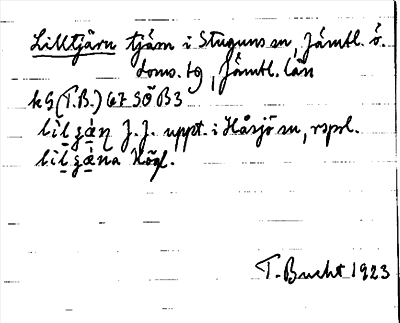 Lilltjärn tjärn i Stuguns sn, Jämtl. ö.
doms. tg, Jämtl. län
kG (T.B.) 67 SÖ B3
J. J. uppt. i Håsjö sn, rspl.
T. Bucht 1923